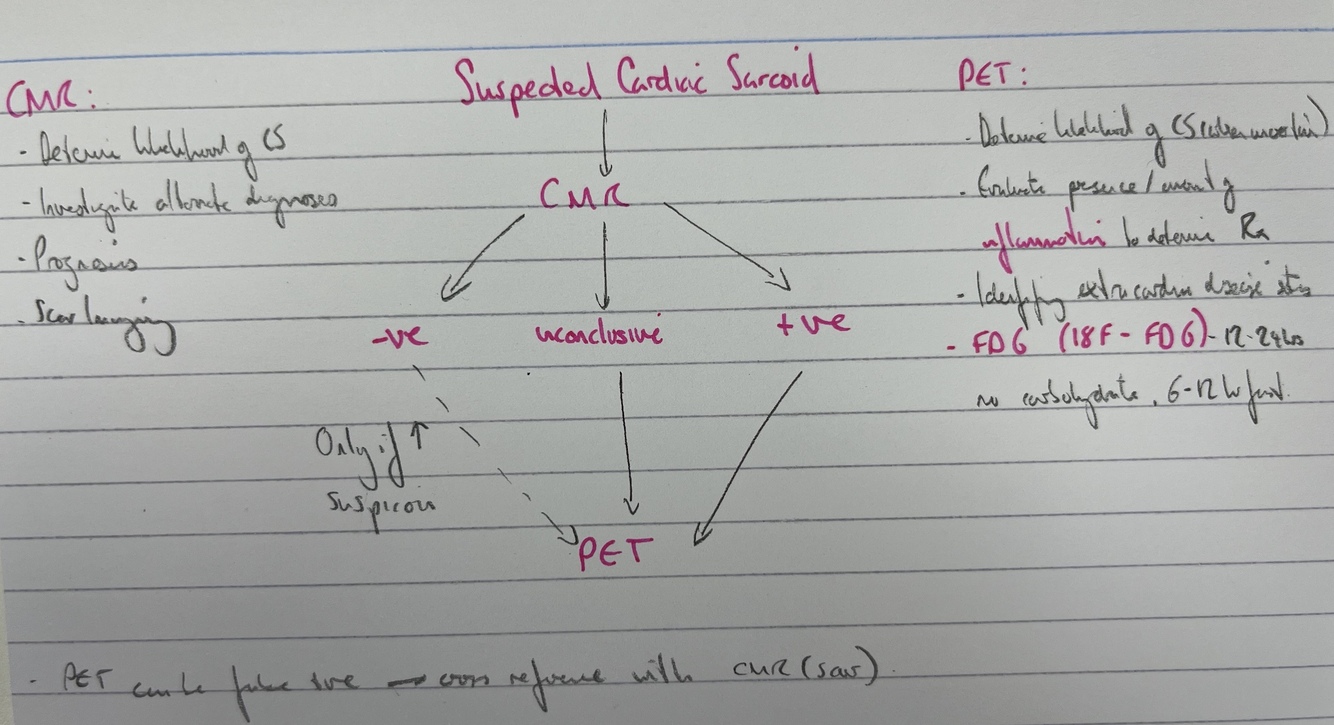 Suspected Cardiac Sarcoid
CMR:
- Determine likelihood of CS
- Investigate alternate diagnoses
- Prognosis
- Scar Imaging
CMR
-ve
inconclusive
+ve
Only if ↑
suspicion
PET
PET:
- Determine likelihood of CS (when
- Evaluate presence/amount of
inflammation to determine Rx
- Identifying extracardiac disease sites
- FDG (18F - FDG) - 12-24hr
no carbohydrate, 6-12 hr fast.
- PET can be false +ve → cross reference with CMR (scar).